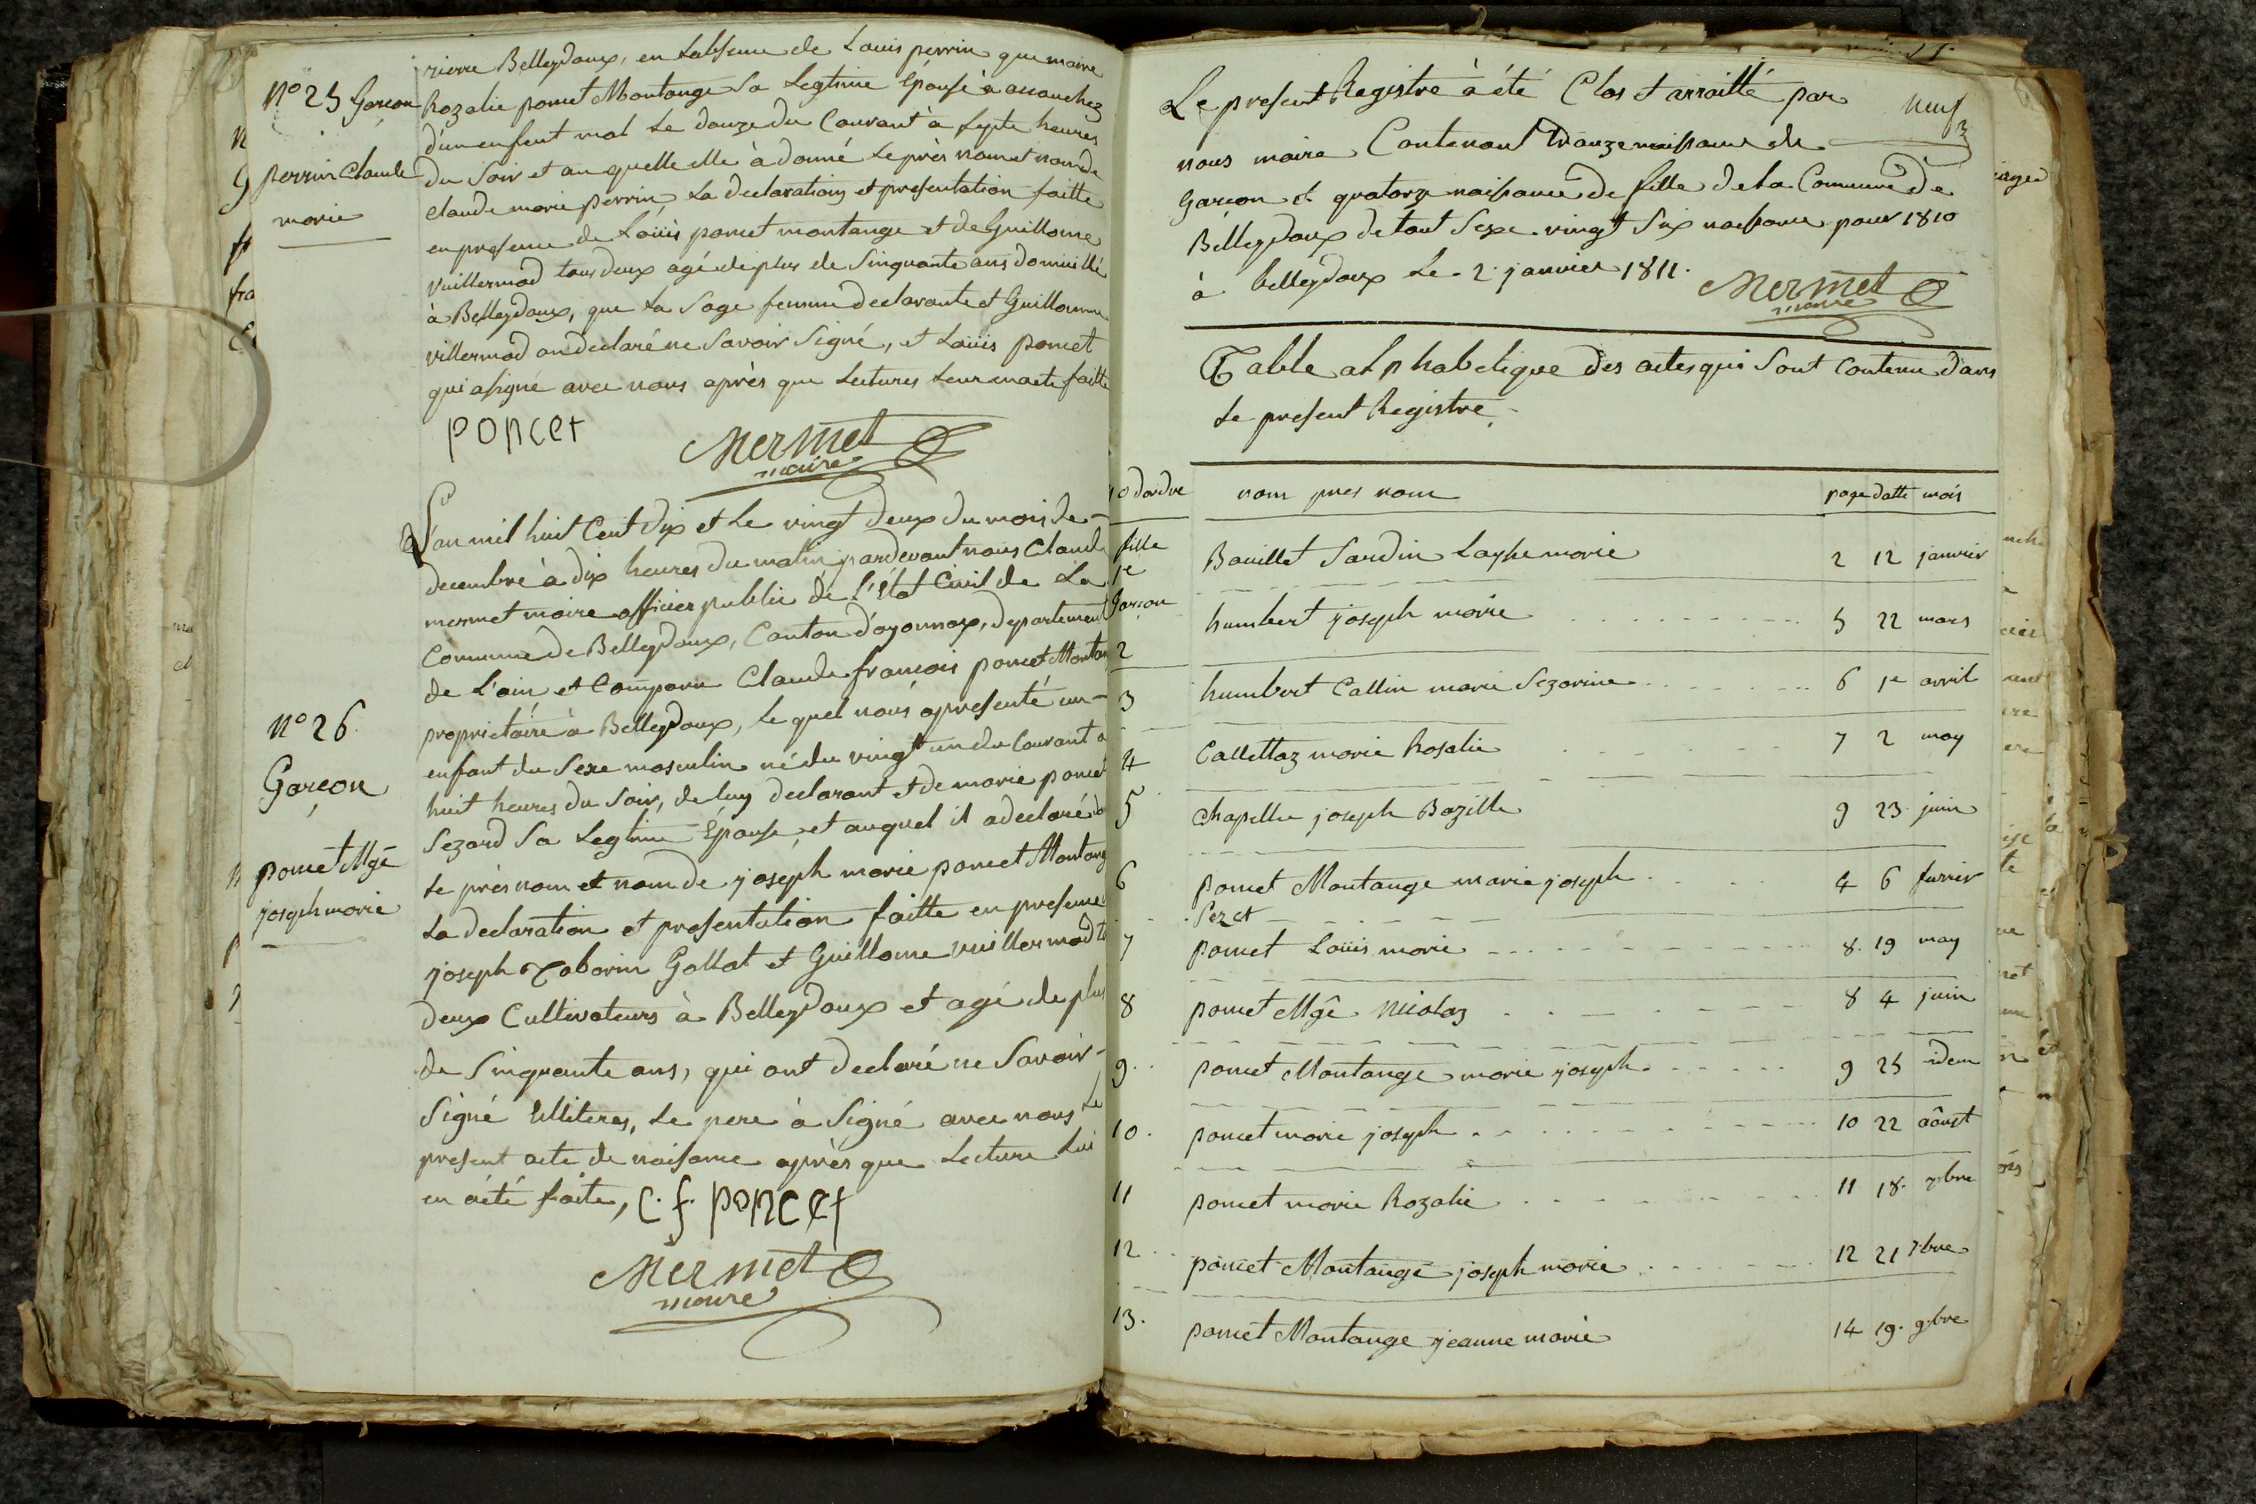 rierre Belleydoux, en labsence de Louis perrin que marie
Rozalie poncet Montange Sa Legtime Épouse à acouchez
d'un enfent mal le douze du Courant à septe heures
du Soir et au quelle elle à donné le près nom et nom de
Claude marie perrin, La declaration et presentation faitte
en presence de Loüis poncet montange et de Guillome
Vuillermod tous deux agé de plus de Sinquante ans domicillé
à Belleydoux, que la Sage femme declarante et Guillaume
villermod on declaré ne Savoir Signé, et Loüis poncet
qui a signé avec nous après que Lectures leur en a ete faitte
poncet
Mermet
maire
N° 25 Garçon
perrin Claude
marie
L'an mil huit Cent dix et le vingt deux du mois de
decembre à dix heures du matin pardevant nous Claude
mermet maire officier public de l'état Civil de La
Commune de Belleydoux, Canton d'oyonnax, departement
de L'ain et Comparu Claude francois poncet Montan
proprietaire à Belleydoux, le quel nous a presenté un
enfant du Sexe masculin né du vingt un du Courant a
huit heures du Soir, de luy declarant et de marie poncet
Sezard Sa Legtime Épouse, et auquel il a declaré do
le près nom et nom de joseph marie poncet Montang
La declaration et presentation faitte en presence
joseph Taborin Gollat et Guillome vuillermod to
deux Cultivateurs à Belleydoux et agé de plus
de Sinquante ans, qui ont declaré ne Savoir
Signé Illiteres, Le pere à Signé avec nous Le
present acte de naisance après que Lecture Lui
en a été faite, C. f. poncet
Mermet
maire
N° 26
Garçon
poncet Mgê
joseph marie
Le present Registre à été Clos et arraitté par
nous maire Contenant Douze naissance de neuf
Garcon et quatorze naissance de fille de la Commune de
Belleydoux de tout Sexe vingt Six naissance pour 1810
à belleydoux le 2 janvier 1811.
Mermet
maire
Table alphabetique des actes qui Sont Contenu dans
Le present Registre
no dordre nom pres nom page datte mois
fille 1e Bouillet Jardin Laysse marie 2 12 janvier
Garçon 2 humbert joseph marie 5 22 mars
3 humbert Callin marie Sezarine 6 1e avril
4 Callettaz marie Rosalie 7 2 may
5 Chapelle joseph Bazille 9 23 juin
6 poncet Montange marie joseph 4 6 fevrier
7 poncet Sezet Loüis marie 8 19 may
8 poncet Mgê Nicolas 8 4 juin
9 poncet Montange marie joseph 9 25 idem
10 poncet marie joseph 10 22 aôust
11 poncet marie Rozalie 11 18 7bre
12 poncet Montange joseph marie 12 21 7bre
13 poncet Montange jeanne marie 14 19 9bre